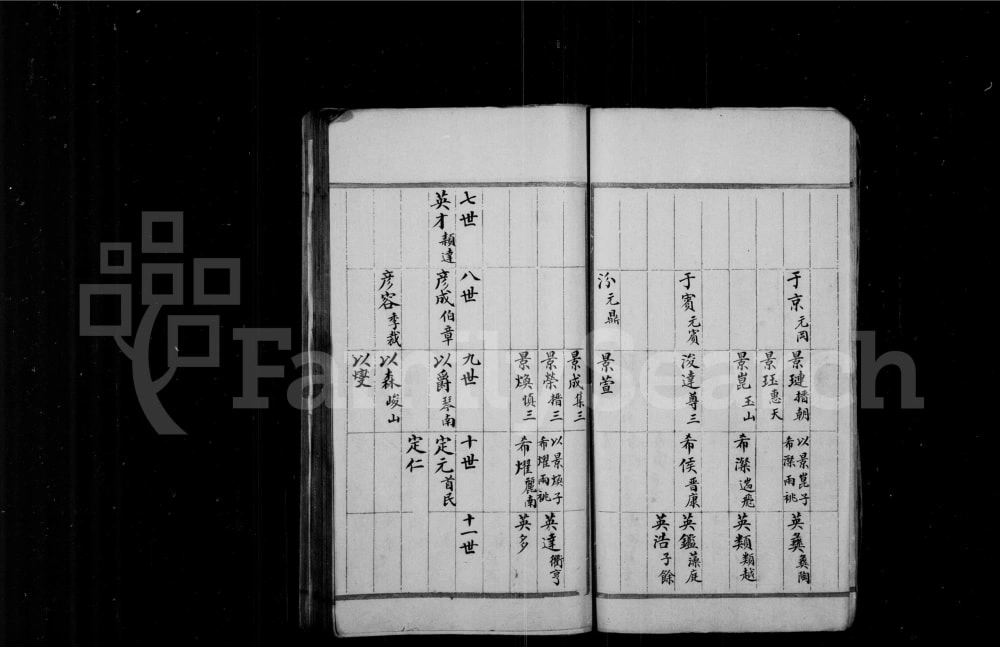 于京元岡
景璉搢朝
以景崑子
希濚兩祧
英彝彝陶
景珏惠天
景崑玉山
希濚遄飛
英類類越
于賓元賓
浚達尊三
希侯晋康
英鑑藻庭
英浩子餘
汾元鼎
景萱
景成集三
景榮搢三
以景煥子
希燿兩祧
英達衢亨
景煥慎三
希燿麗南
英多
七世
八世
九世
十世
十一世
英才頴達
彦成伯章
以爵琴南
定元首民
定仁
彦容季裁
以森峻山
以燮
FamilySearch